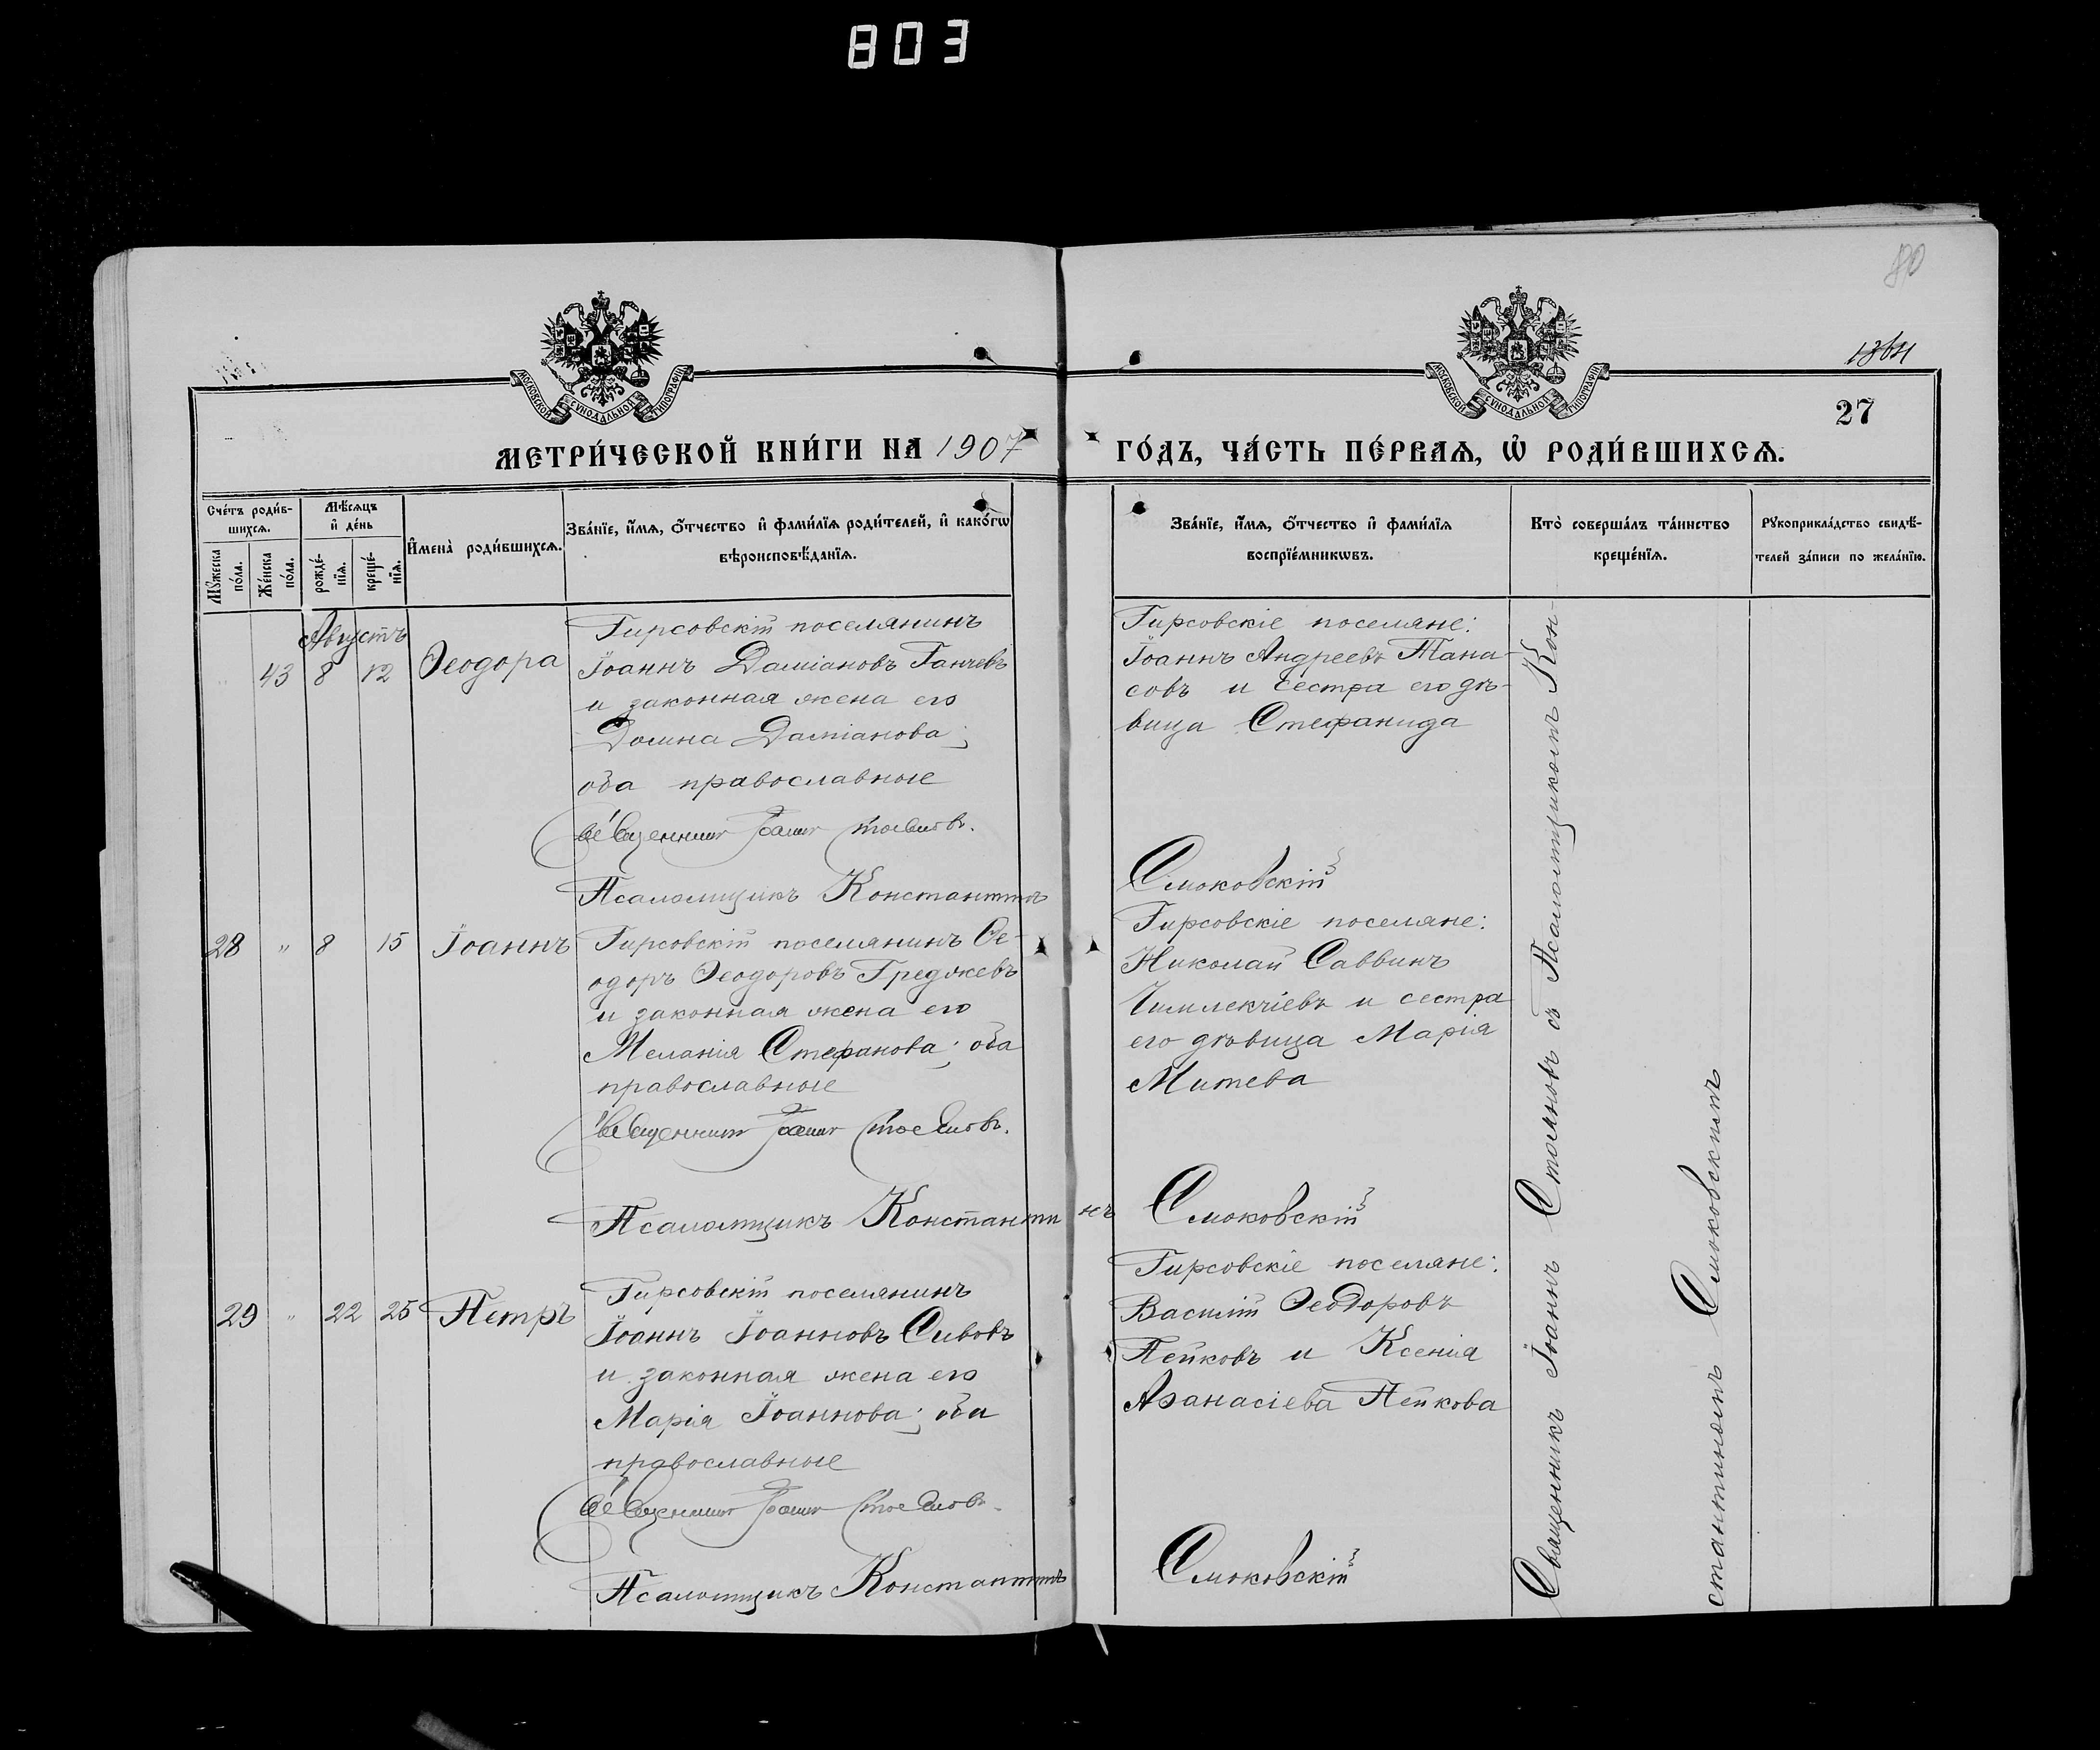 803
80
1364
МОСКОВСКОЙ СѴНОДАЛЬНОЙ ТИПОГРАФІИ
МОСКОВСКОЙ СѴНОДАЛЬНОЙ ТИПОГРАФІИ
27
МЕТРИ́ЧЕСКОЙ КНИ́ГИ НА 1907
ГО́ДЪ, ЧА́СТЬ ПЕ́РВАѦ, Ѡ҆ РОДИ́ВШИХСѦ.
Сче́тъ роди́в-
шихсѧ.
Мꙋ́жеска по́ла.
Же́нска по́ла.
Мѣ́сѧцъ
и҆ де́нь
рожде́-
нїѧ.
креще́-
нїѧ.
И҆мена̀ роди́вшихсѧ.
Зва́нїе, и҆́мѧ, ѻ҆́тчество и҆ фами́лїѧ роди́телей, и҆ како́гѡ
вѣроисповѣ́данїѧ.
Зва́нїе, и҆́мѧ, ѻ҆́тчество и҆ фами́лїѧ
воспрїе́мникѡвъ.
Кто̀ соверша́лъ та́инство
креще́нїѧ.
Рꙋкоприкла́дство свидѣ́-
телей за́писи по жела́нїю.
Августъ
43 8 12 Ѳеодора
Гирсовскій поселянинъ
Іоаннъ Даміановъ Ганчевъ
и законная жена его
Домна Даміанова;
оба православные
Священникъ Іоаннъ Стояновъ.
Псаломщикъ Константинъ
Гирсовскіе поселяне:
Іоаннъ Андреевъ Тана-
совъ и сестра его дѣ-
вица Стефанида
Смоковскій
28 " 8 15 Іоаннъ
Гирсовскій поселянинъ Ѳе-
одоръ Ѳеодоровъ Греджевъ
и законная жена его
Меланія Стефанова; оба
православные
Священникъ Іоаннъ Стояновъ.
Псаломщикъ Константинъ
Гирсовскіе поселяне:
Николай Саввинъ
Чимлекчіевъ и сестра
его дѣвица Марія
Митева
Смоковскій
29 " 22 25 Петръ
Гирсовскій поселянинъ
Іоаннъ Іоанновъ Сивовъ
и законная жена его
Марія Іоаннова; оба
православные
Священникъ Іоаннъ Стояновъ.
Псаломщикъ Константинъ
Гирсовскіе поселяне:
Василій Ѳеодоровъ
Пейковъ и Ксенія
Аѳанасіева Пейкова
Смоковскій
Священникъ Іоаннъ Стояновъ съ Псаломщикомъ Кон-
стантиномъ Смоковскимъ